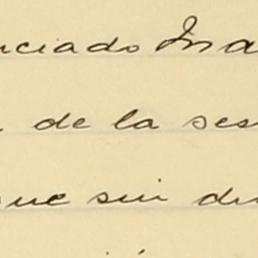 nciado Ma
de la ses
que sin du